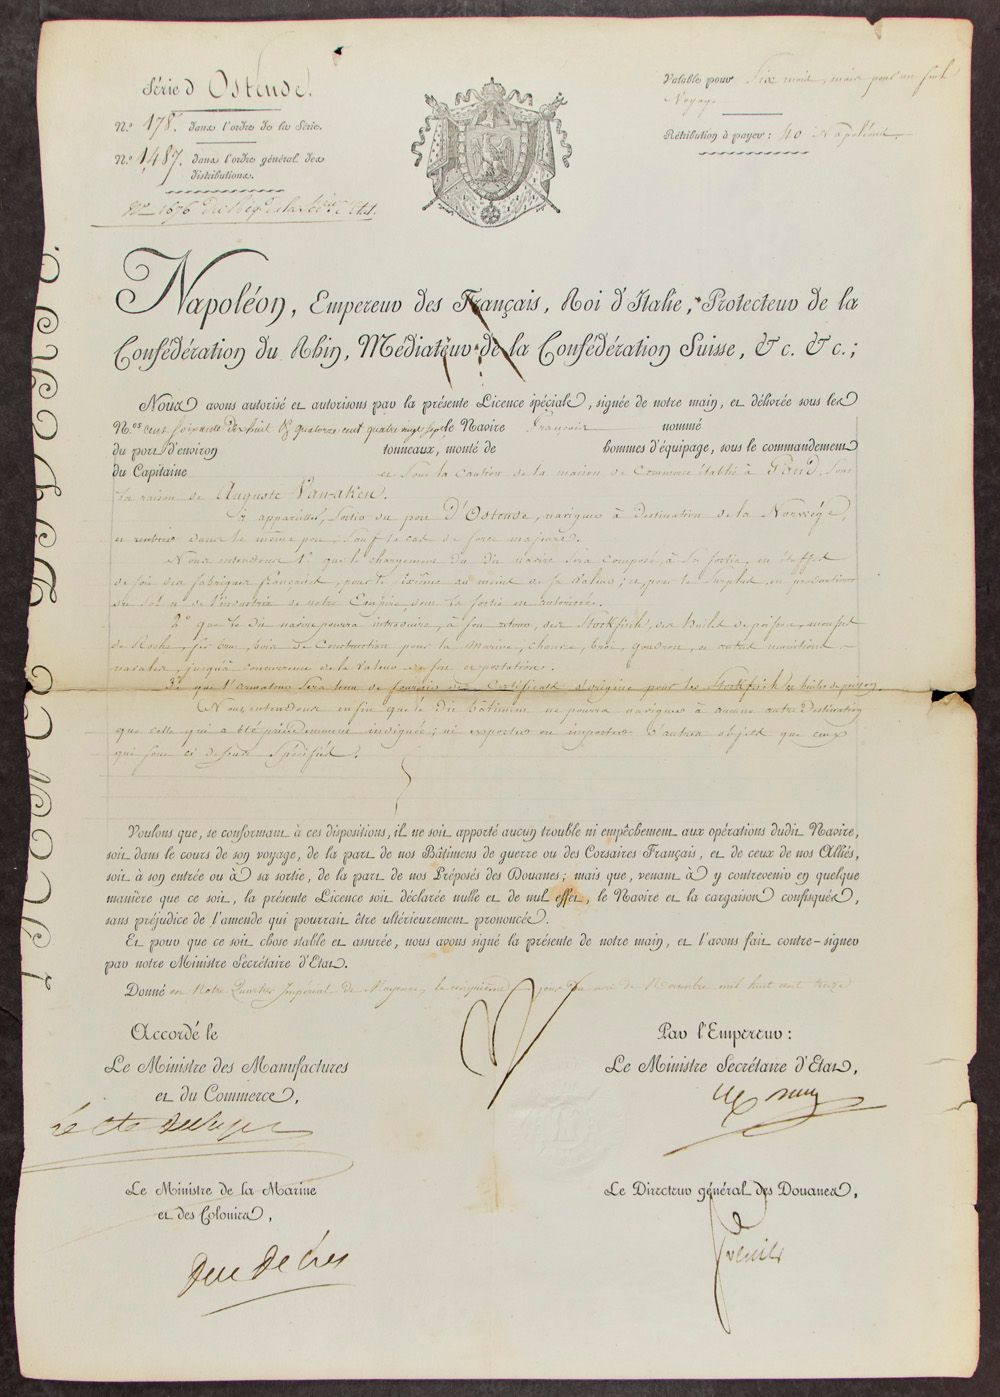 Série d'Ostende.
N.º 178. dans l'ordre de la Série.
N.º 1,487. dans l'ordre général des
distributions.
Nº 1676 du Reg. de la Sec.rie d'Etat.
Valable pour Six mois, mais pour un seul
Voyage
Rétribution à payer : 40 Napoléons
LICENCE DIVERSE.
Napoléon, Empereur des Français, Roi d'Italie, Protecteur de la
Confédération du Rhin, Médiateur de la Confédération Suisse, &c. &c. ;
Nous avons autorisé et autorisons par la présente Licence spéciale, signée de notre main, et délivrée sous les
N.os cent soixante dix huit & quatorze cent quatre vingt sept le Navire français nommé
du port d'environ tonneaux, monté de hommes d'équipage, sous le commandement
du Capitaine et sous la caution de la maison de Commerce établie à Gand, sous
la raison de Auguste Van-aken.
à appareiller, sortir du port d'Ostende, naviguer à destination de la Norwège,
et rentrer dans le même port. Sauf le cas de force majeure.
Nous entendons 1º que le chargement du dit navire sera composé, à sa sortie, en étoffes
de soie des fabriques françaises, pour le au moins de sa valeur ; et pour le surplus, en productions
du sol ou de l'industrie de notre Empire dont la sortie est autorisée.
2º que le dit navire pourra introduire, à son retour, des Stockfisch, des huiles de poisson,
de Roche, fer brut, bois de Construction pour la marine, chanvre, brai, goudron, et autres munitions
navales, jusqu'à concurrence de la valeur de son exportation.
3º que l'armateur sera tenu de fournir des Certificats d'origine pour les Stockfisch et huiles de poisson.
Nous entendons enfin que le dit bâtiment ne pourra naviguer à aucune autre destination
que celle qui a été précédemment indiquée ; ni exporter ou importer d'autres objets que ceux
qui sont ci dessus spécifiés.
Voulons que, se conformant à ces dispositions, il ne soit apporté aucun trouble ni empêchement aux opérations dudit Navire,
soit dans le cours de son voyage, de la part de nos Bâtimens de guerre ou des Corsaires Français, et de ceux de nos Alliés,
soit à son entrée ou à sa sortie, de la part de nos Préposés des Douanes ; mais que, venant à y contrevenir en quelque
manière que ce soit, la présente Licence soit déclarée nulle et de nul effet, le Navire et la cargaison confisqués,
sans préjudice de l'amende qui pourrait être ultérieurement prononcée.
Et pour que ce soit chose stable et assurée, nous avons signé la présente de notre main, et l'avons fait contre-signer
par notre Ministre Secrétaire d'Etat.
Donné en Notre Quartier Impérial de Mayence, le cinquième jour du mois de Novembre mil huit cent treize
Accordé le
Le Ministre des Manufactures
et du Commerce,
Par l'Empereur :
Le Ministre Secrétaire d'Etat,
Le Ministre de la Marine
et des Colonies,
Duc Decrès
Le Directeur général des Douanes,